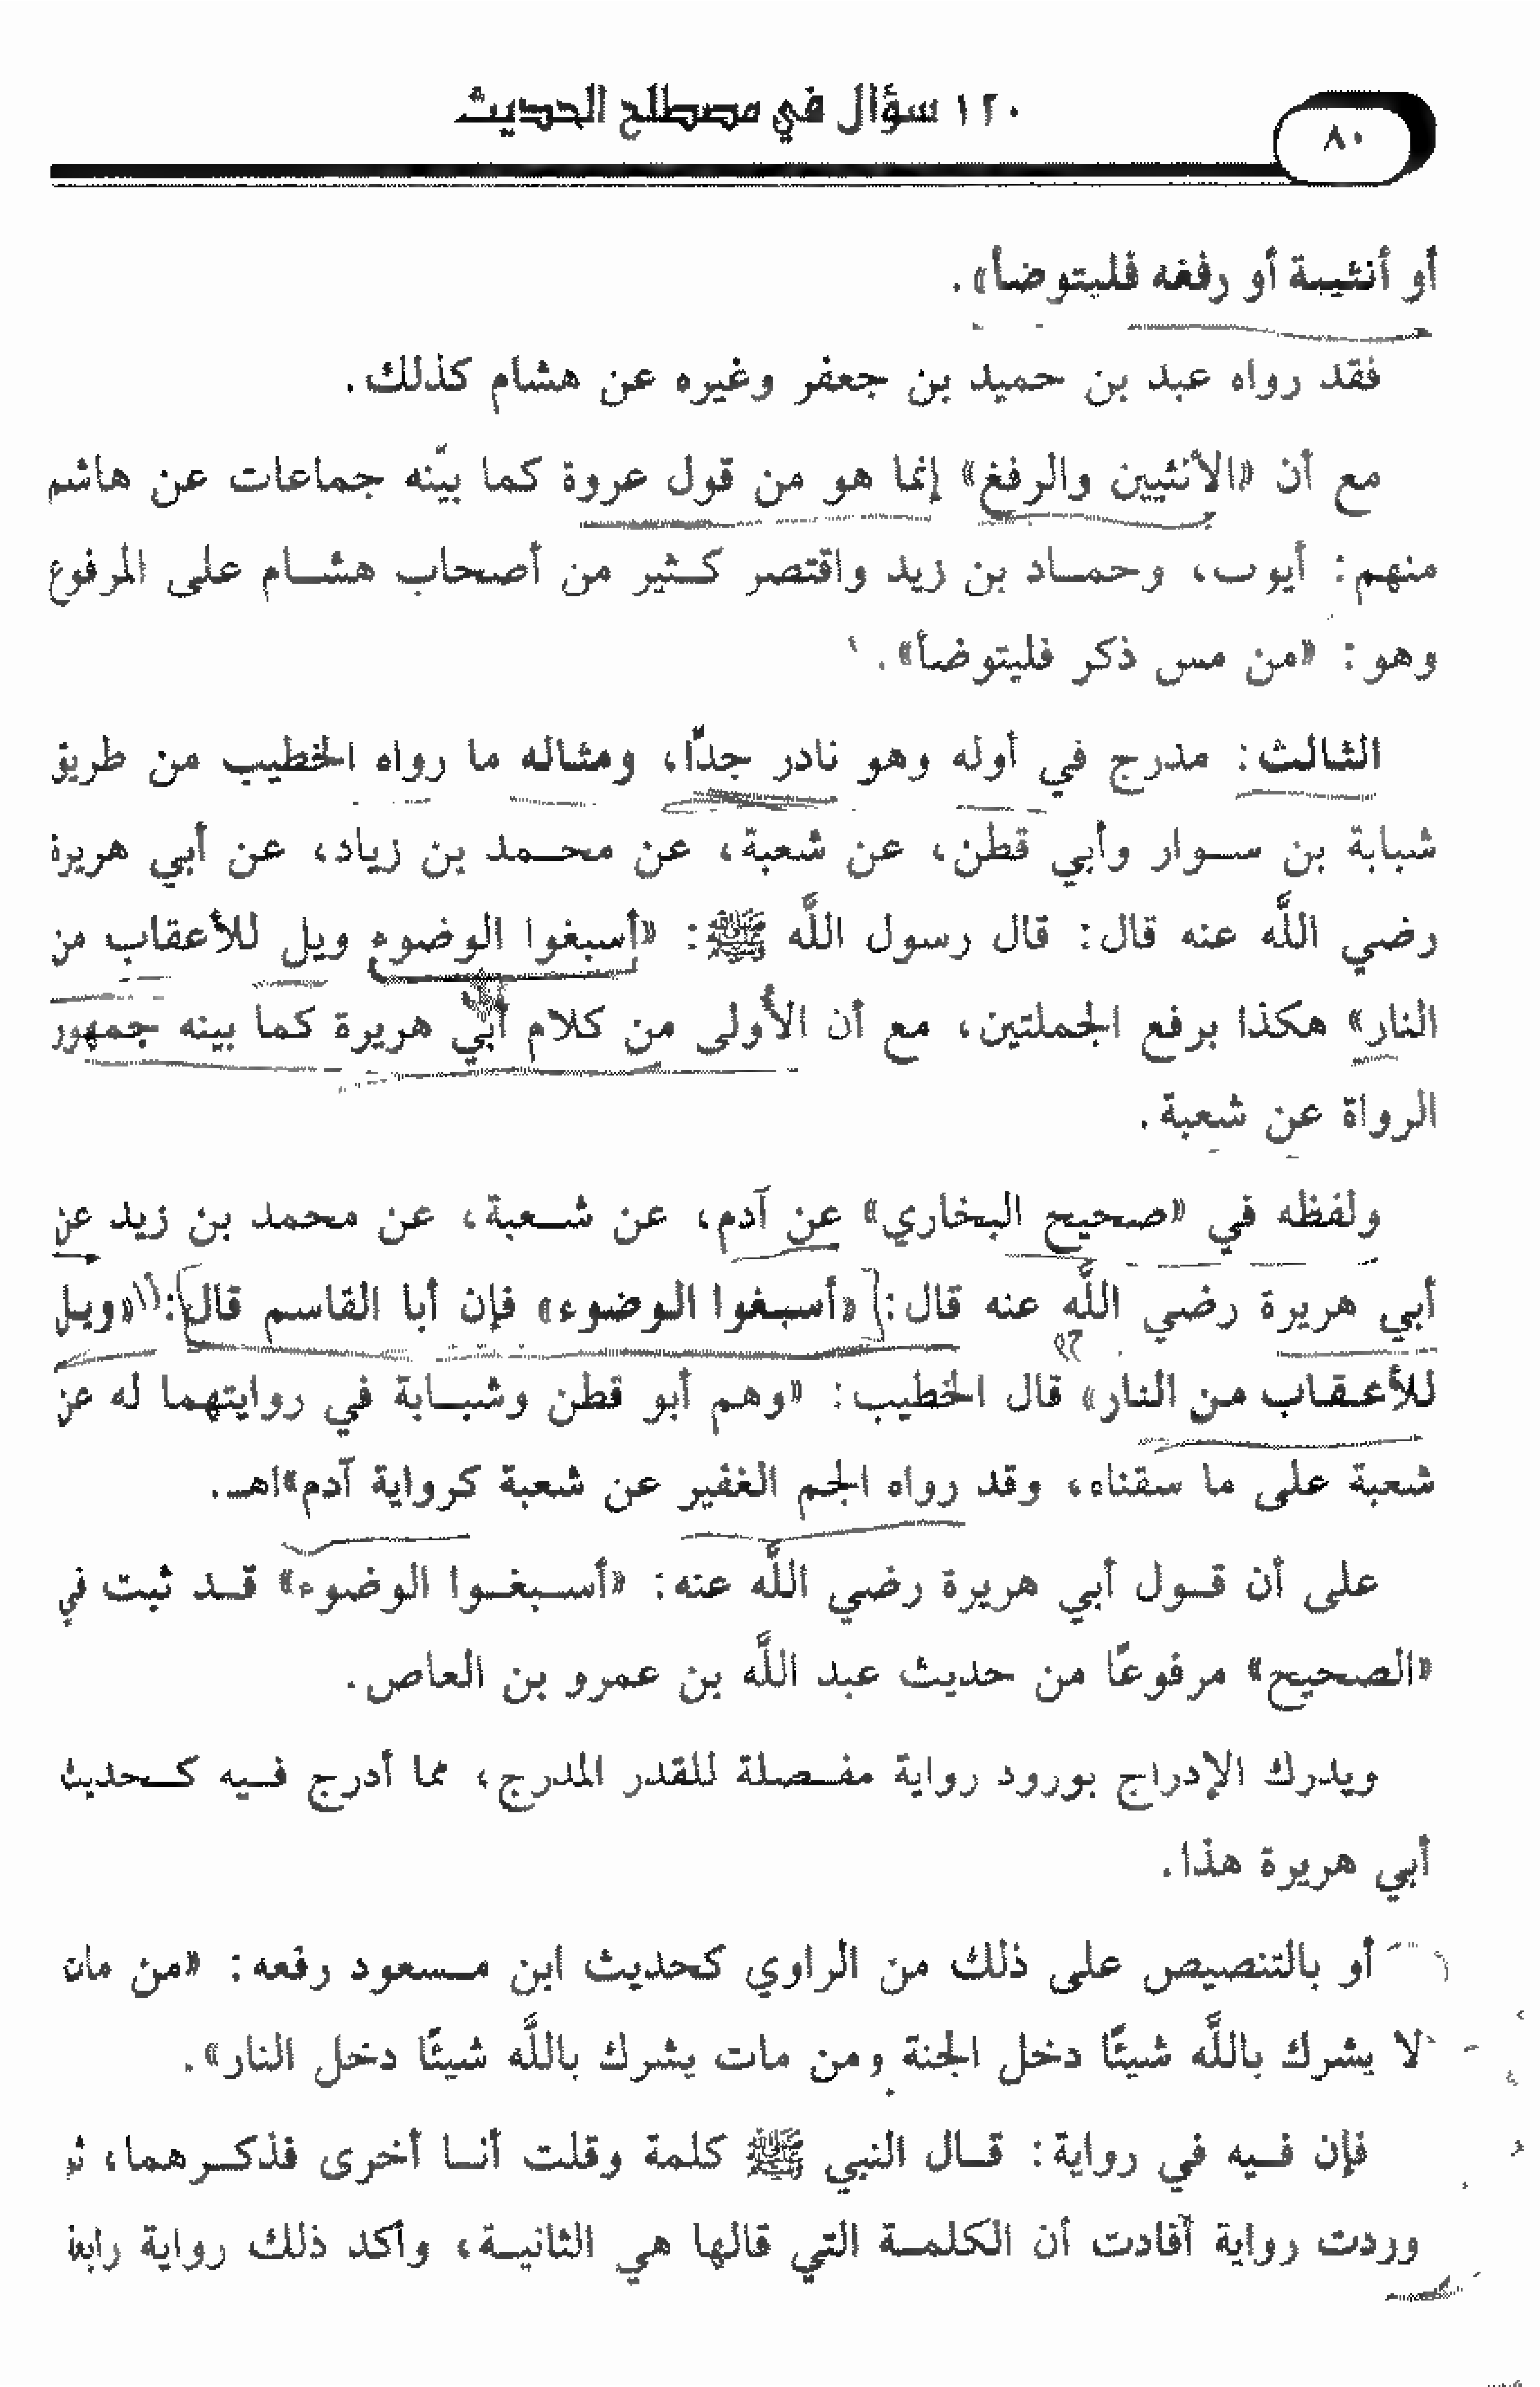 ١٢٠ سؤال في مصطلح الحديث
٨٠
أو أنثييه أو رفغه فليتوضأ».
فقد رواه عبد بن حميد بن جعفر وغيره عن هشام كذلك.
مع أن «الأنثيين والرفغ» إنما هو من قول عروة كما بيّنه جماعات عن هاشم
منهم: أيوب، وحماد بن زيد واقتصر كثير من أصحاب هشام على المرفوع
وهو: «من مس ذكر فليتوضأ».
الثالث: مدرج في أوله وهو نادر جدًّا، ومثاله ما رواه الخطيب من طريق
شبابة بن سوار وأبي قطن، عن شعبة، عن محمد بن زياد، عن أبي هريرة
رضي اللَّه عنه قال: قال رسول اللَّه ﷺ: «أسبغوا الوضوء ويل للأعقاب من
النار» هكذا برفع الجملتين، مع أن الأولى من كلام أبي هريرة كما بينه جمهور
الرواة عن شعبة.
ولفظه في «صحيح البخاري» عن آدم، عن شعبة، عن محمد بن زيد عن
أبي هريرة رضي اللَّه عنه قال: «أسبغوا الوضوء» فإن أبا القاسم قال: «ويل
للأعقاب من النار» قال الخطيب: «وهم أبو قطن وشبابة في روايتهما له عن
شعبة على ما سقناه، وقد رواه الجم الغفير عن شعبة كرواية آدم»اهـ.
على أن قول أبي هريرة رضي اللَّه عنه: «أسبغوا الوضوء» قد ثبت في
«الصحيح» مرفوعًا من حديث عبد اللَّه بن عمرو بن العاص.
ويدرك الإدراج بورود رواية مفصلة للقدر المدرج، مما أدرج فيه كحديث
أبي هريرة هذا.
أو بالتنصيص على ذلك من الراوي كحديث ابن مسعود رفعه: «من مات
لا يشرك باللَّه شيئًا دخل الجنة ومن مات يشرك باللَّه شيئًا دخل النار».
فإن فيه في رواية: قال النبي ﷺ كلمة وقلت أنا أخرى فذكرهما، ثم
وردت رواية أفادت أن الكلمة التي قالها هي الثانية، وأكد ذلك رواية رابعة